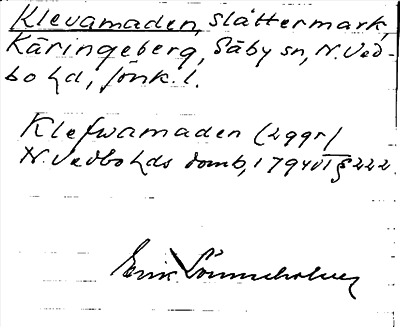 Klevamaden, slåttermark,
Käringeberg, Säby sn, N. Ved-
bo hd, Jönk. l.
Klefwamaden (2991)
N. Vedbo hds domb, 1794 VI § 222
Erik